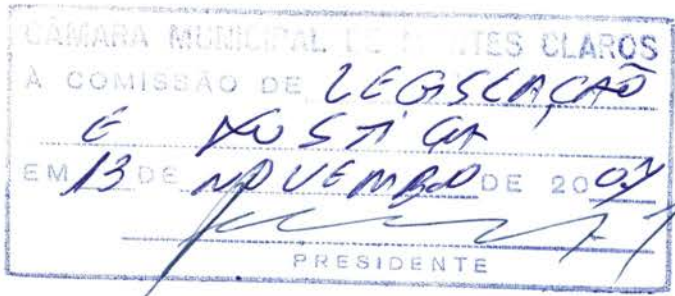 CÂMARA MUNICIPAL DE MONTES CLAROS
À COMISSÃO DE LEGISLAÇÃO
E JUSTIÇA
EM 13 DE NOVEMBRO DE 2007
PRESIDENTE